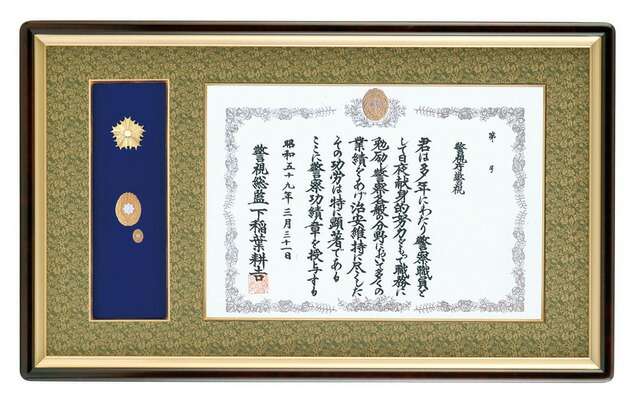 第　号
警視庁警視
君は多年にわたり警察職員と
して日夜献身的努力をもつて職務に
勉励し警察各般の分野において多くの
業績をあげ治安維持に尽くした
その功労は特に顕著である
ここに警察功績章を授与する
昭和五十九年三月三十一日
警視総監 下稲葉耕吉